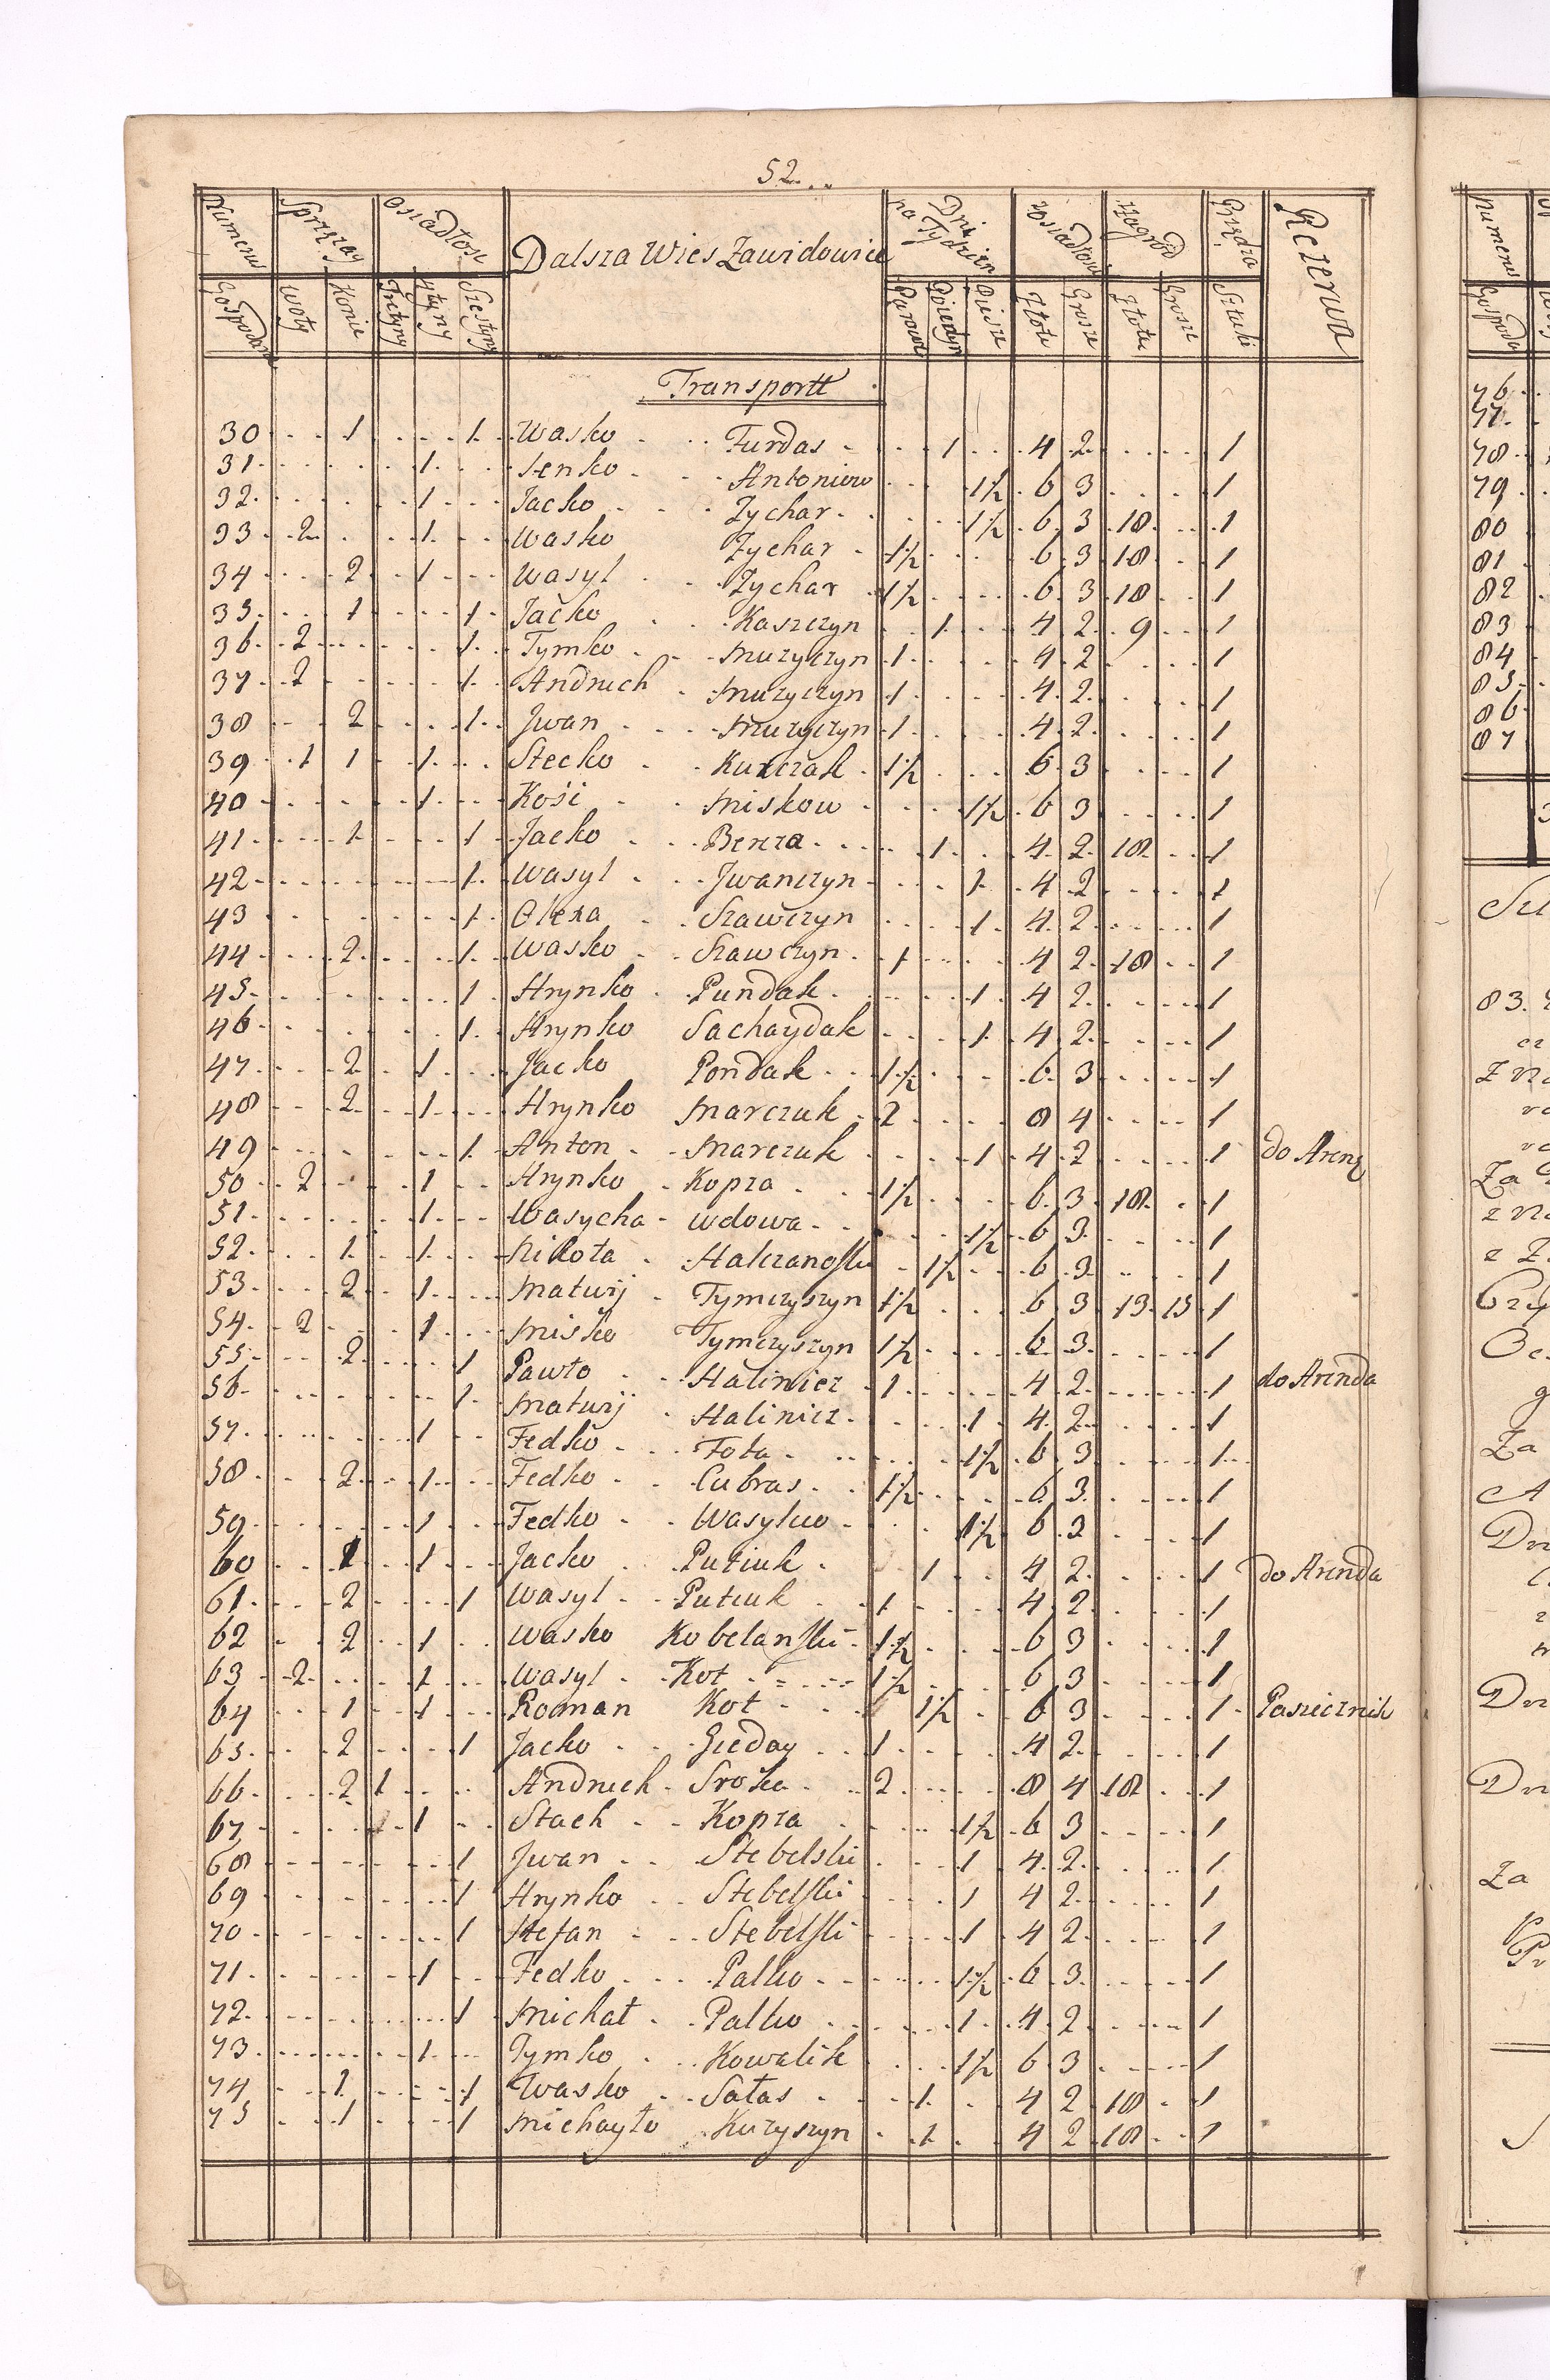 52
Numerus Sprzęzay osiadłosc Dalsza Wies Zawidowice Dni na Tydzien z osiadłosci zagrod Przędza Rezerwa
Gospodarz Woły Konie Tretyny Szestyny Parowe Poiedyn Piesze Złote Grosze Złote Grosze Sztuki
Transportt
30 1 1 Wasko Furdas 1 4 2 1
31 1 Senko Antoniew 1½ 6 3 1
32 1 Jacko Zychar 1½ 6 3 18 1
33 2 1 Wasko Zychar 1½ 6 3 18 1
34 2 1 Wasyl Zychar 1½ 6 3 18 1
35 1 1 Jacko Kaszczyn 1 4 2 9 1
36 2 1 Tymko Muzyczyn 1 4 2 1
37 2 1 Andruch Muzyczyn 1 4 2 1
38 2 1 Jwan Muzyczyn 1 4 2 1
39 1 1 1 Stecko Kurczak 1½ 6 3 1
40 1 Kość Miskow 1½ 6 3 1
41 1 1 Jacko Berza 1 4 2 18 1
42 1 Wasyl Jwanczyn 1 4 2 1
43 1 Olexa Szawczyn 1 4 2 1
44 2 1 Wasko Szawczyn 1 4 2 18 1
45 1 Hrynko Pundak 1 4 2 1
46 1 Hrynko Sachaydak 1 4 2 1
47 2 1 Jacko Pondak 1½ 6 3 1
48 2 1 Hrynko Marczuk 2 8 4 1
49 1 Anton Marczuk 1 4 2 1 do Arend
50 2 1 Hrynko Kopza 1½ 6 3 18 1
51 1 Wasycha wdowa 1½ 6 3 1
52 1 1 Mikołа Halczanoski 1½ 6 3 1
53 2 1 Matwij Tymczyszyn 1½ 6 3 13 15 1
54 2 1 Misko Tymczyszyn 1½ 6 3 1
55 2 1 Pawło Halinicz 1 4 2 1 do Arenda
56 1 Matwij Halinicz 1 4 2 1
57 1 Fedko Fota 1½ 6 3 1
58 2 1 Fedko Cubras 1½ 6 3 1
59 1 Fedko Wasylkiw 1½ 6 3 1
60 1 1 Jacko Putiuk 1 4 2 1 do Arenda
61 2 1 Wasyl Putiuk 1 4 2 1
62 2 1 Wasko Kobelanski 1½ 6 3 1
63 2 1 Wasyl Kot 1½ 6 3 1
64 1 1 Roman Kot 1½ 6 3 1 Pasiecznik
65 2 1 Jacko Gieday 1 4 2 1
66 2 1 Andruch Sroka 2 8 4 18 1
67 1 Stach Kopza 1½ 6 3 1
68 1 Jwan Stebelski 1 4 2 1
69 1 Hrynko Stebelski 1 4 2 1
70 1 Stefan Stebelski 1 4 2 1
71 1 Fedko Palko 1½ 6 3 1
72 1 Michał Palko 1 4 2 1
73 1 Tymko Kowalik 1½ 6 3 1
74 1 1 Wasko Sałas 1 4 2 18 1
75 1 1 Michayło Kuzyszyn 1 4 2 18 1
numerus
Gospoda
76
77
78
79
80
81
82
83
84
85
86
87
83.
Za
Za
Za